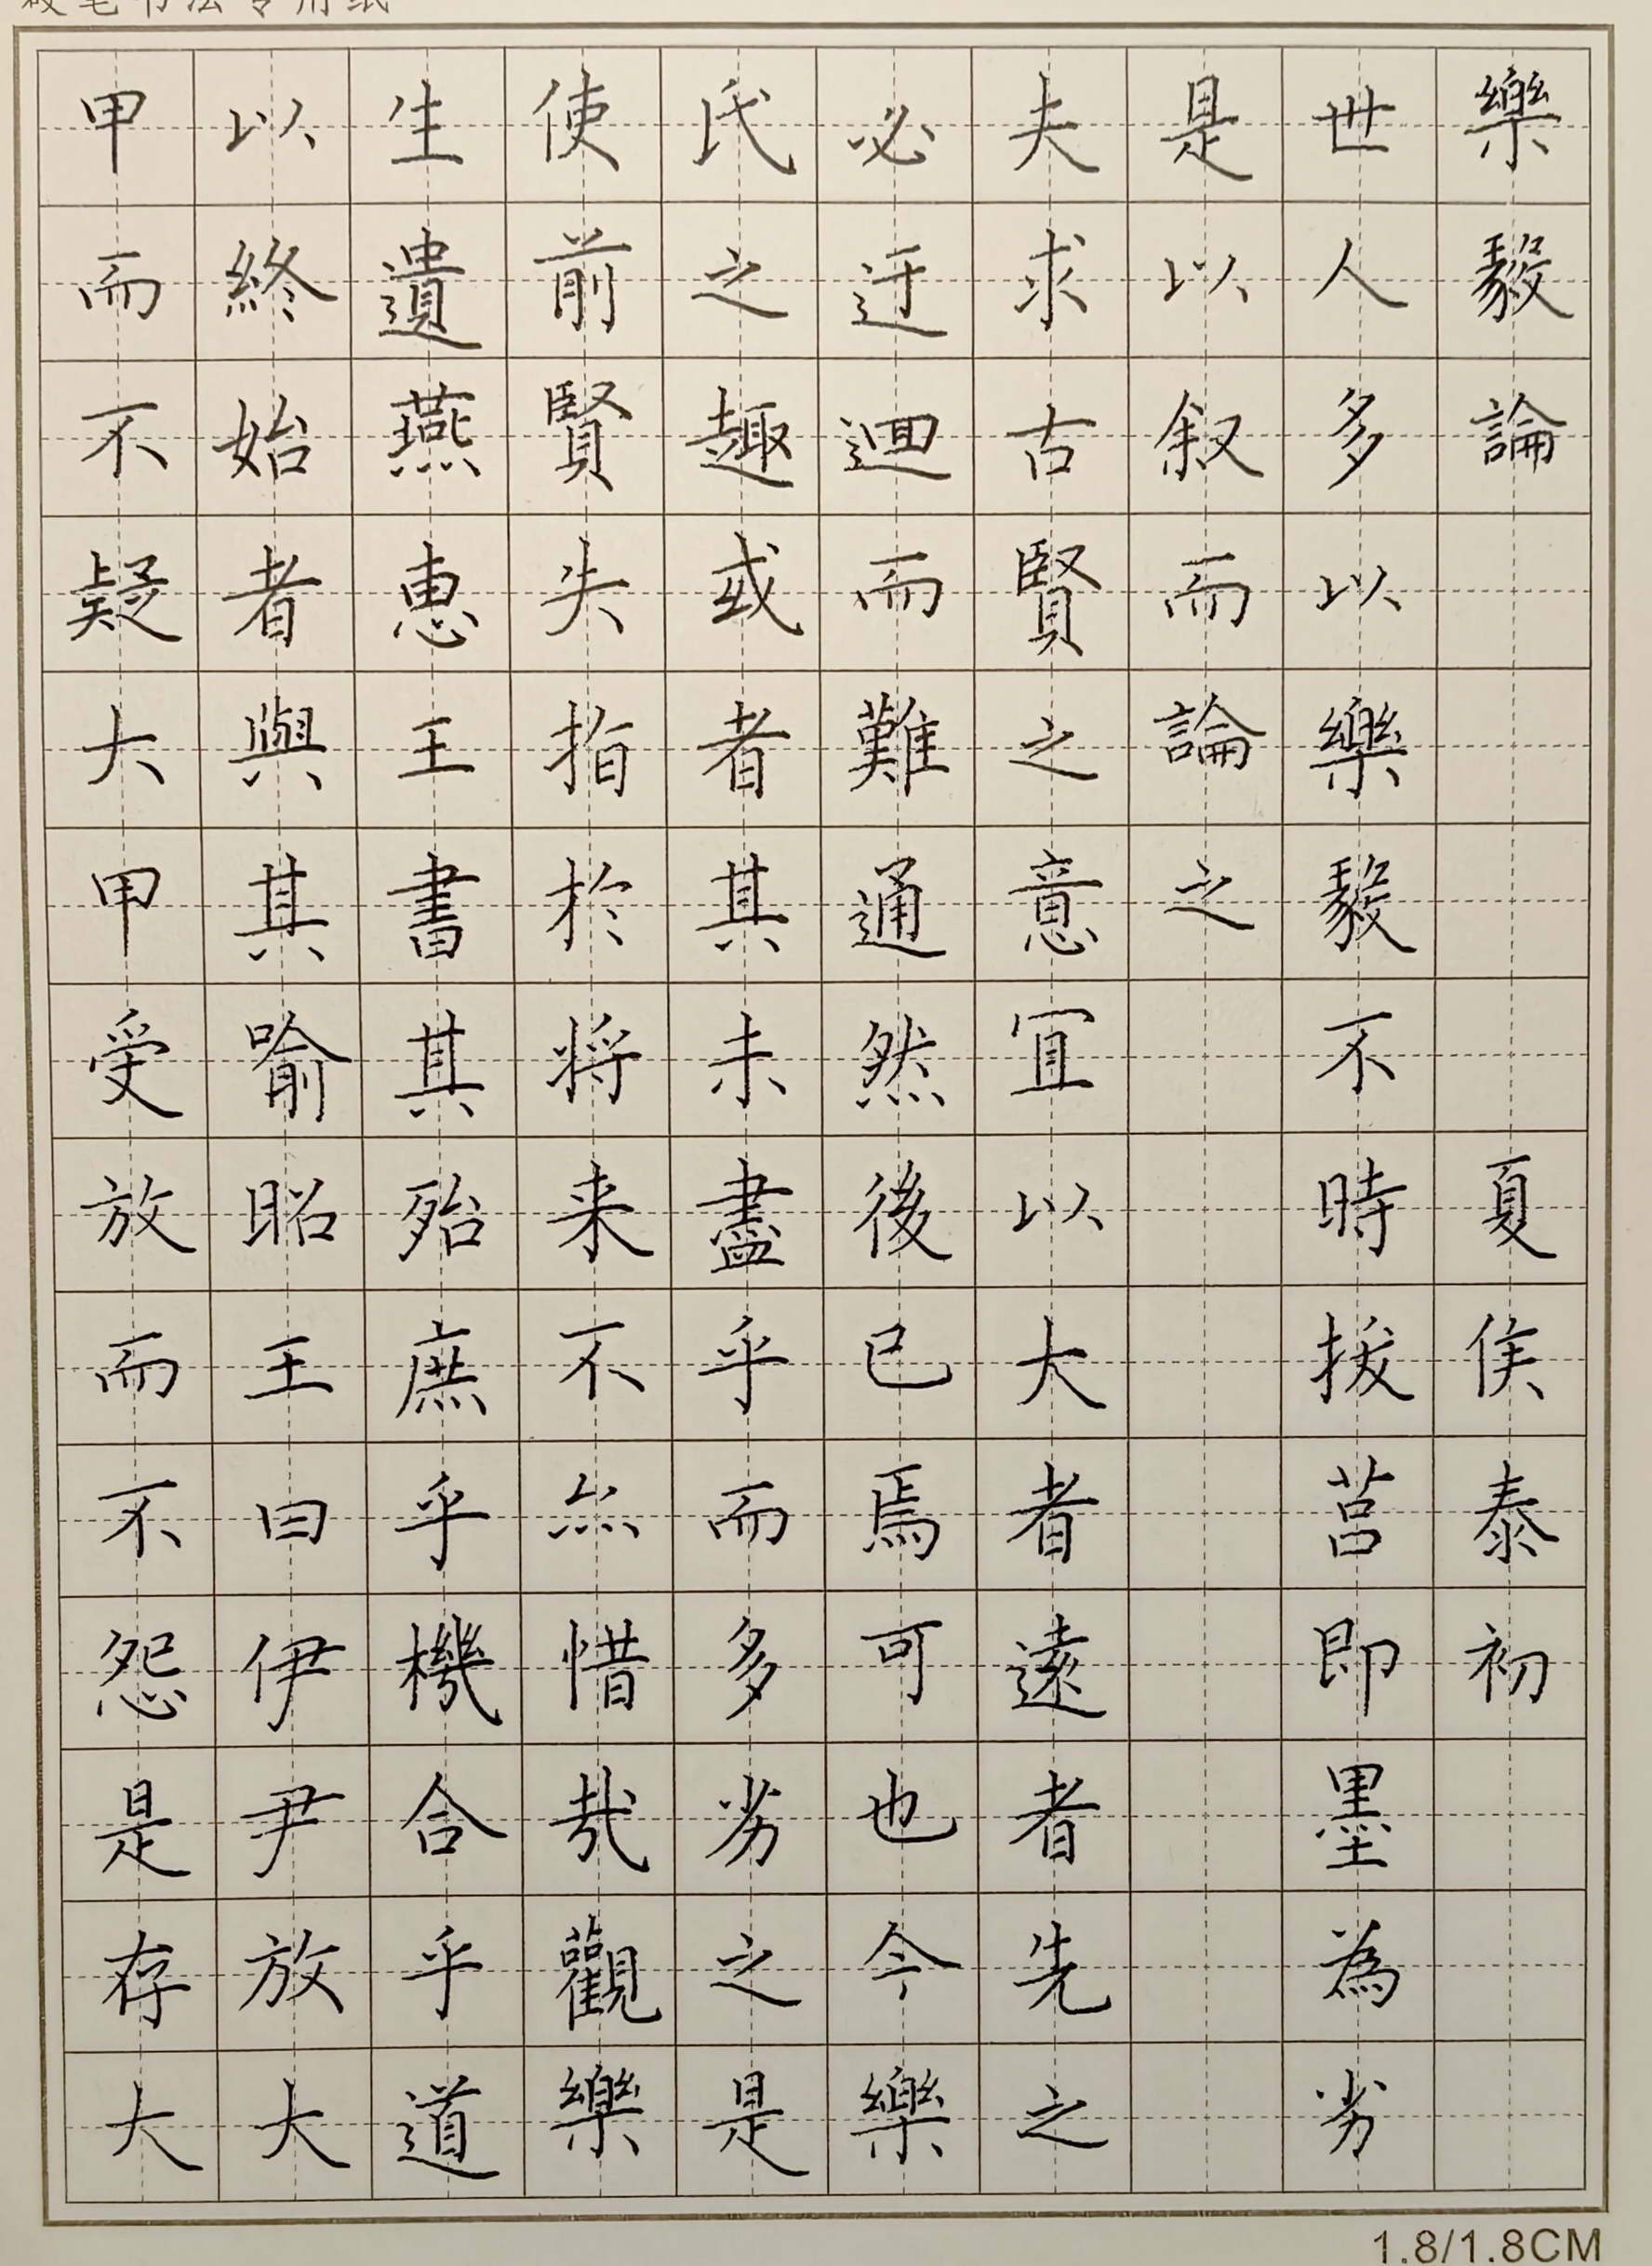 硬笔书法专用纸
樂毅論夏侯泰初
世人多以樂毅不時拔莒即墨為劣
是以叙而論之
夫求古賢之意宜以大者遠者先之
必迂迴而難通然後已焉可也今樂
氏之趣或者其未盡乎而多劣之是
使前賢失指於将来不亦惜哉觀樂
生遺燕惠王書其殆庶乎機合乎道
以終始者與其喻昭王曰伊尹放大
甲而不疑大甲受放而不怨是存大
1.8/1.8CM